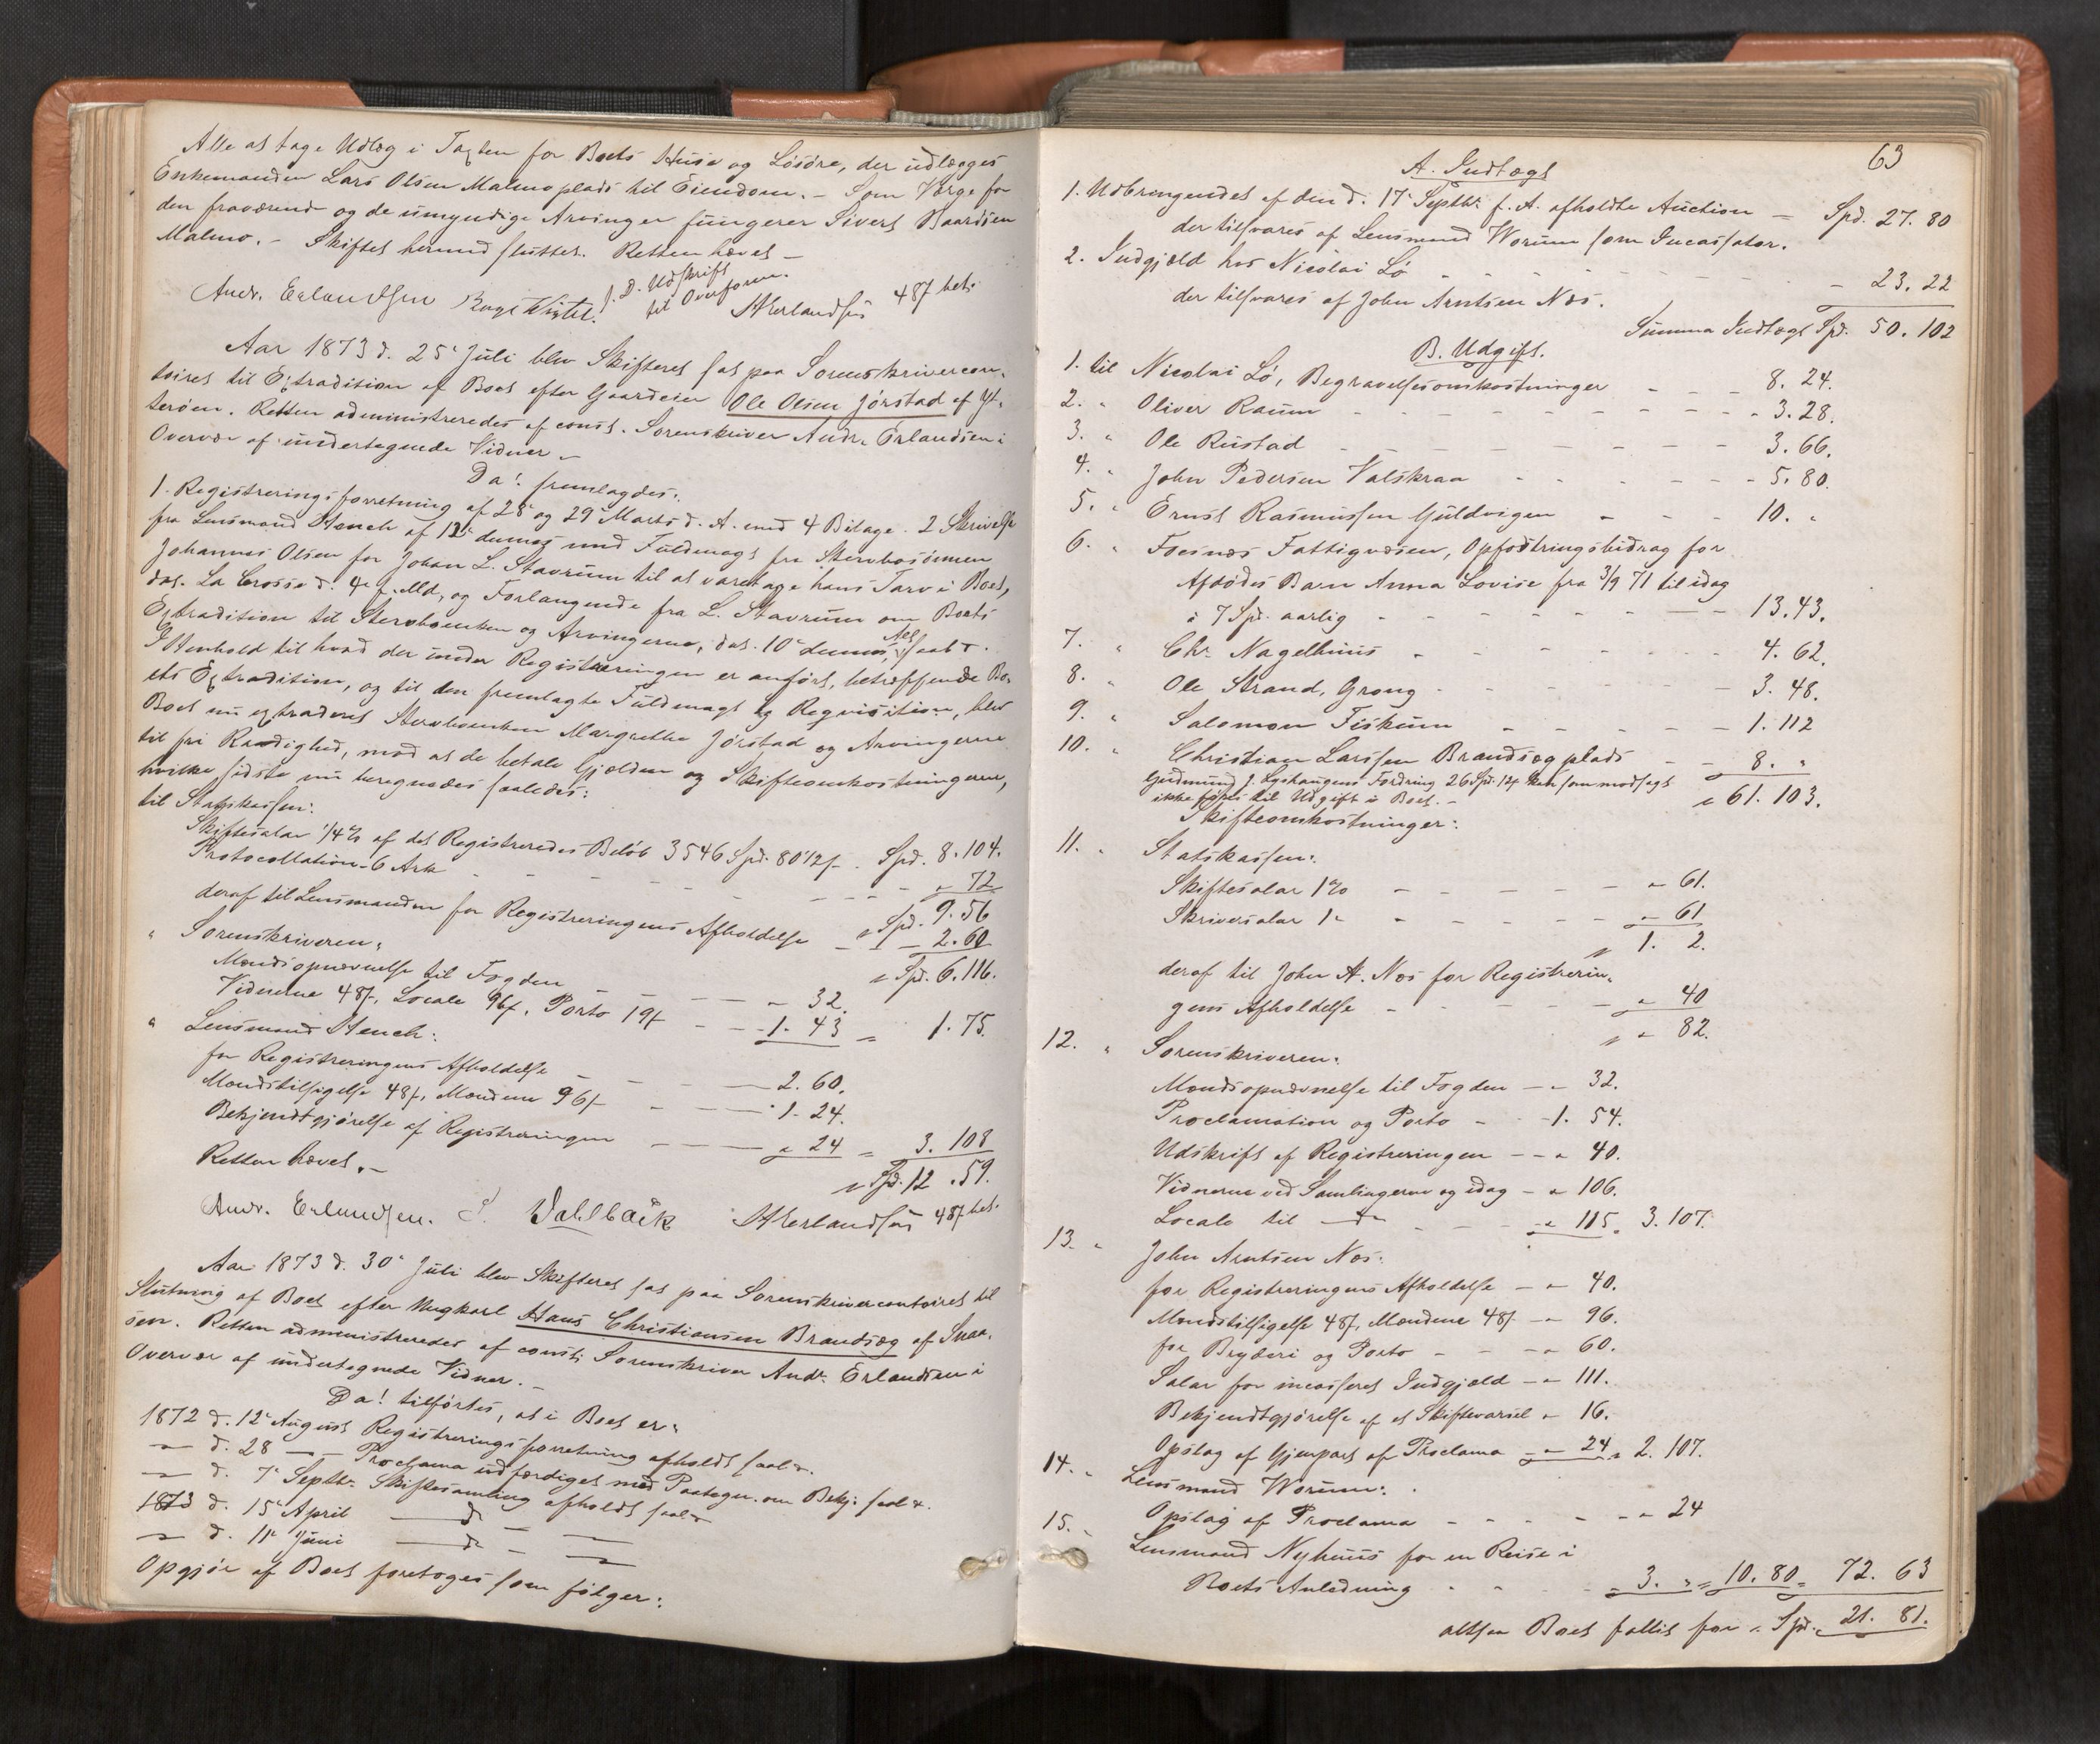 Alle at tage Udlæg i Taxten for Boets Huse og Løsøre, der udlægges
Enkemanden Lars Olsen Malmoplads til Eiendom. – Som Værge for
den fraværende og de umyndige Arvinger fungerer Sivert Baardsen
Malmo. – Skiftet hermed sluttet. Retten hævet –
Andr. Erlandsen
f. D. Udskrift
til Overform.
HErlandsen 48 f bet.
Aar 1873 d. 25 Juli blev Skifteret sat paa Sorenskrivercon-
toiret til Extradition af Boet efter Gaardeier Ole Olsen Jørstad af Yt-
terøen. Retten administreredes af const. Sorenskriver Andr. Erlandsen i
Overvær af undertegnede Vidner. –
Da! fremlagdes:
1. Registreringsforretning af 28 og 29 Marts d. A. med 4 Bilage. 2 Skrivelse
fra Lensmand Hench af 12 dennes med Fuldmagt fra Stervbosønnen
Johannes Olsen for Johan L. Stavrum til at varetage hans Tarv i Boet,
dat. La Crosse d. 4 f. Md, og Forlangende fra L. Stavrum om Boets
Extradition til Stervboenken og Arvingerne, dat. 10 dennes, Alt saal.
I Henhold til hvad der under Registreringen er anført, betræffende Bo-
ets Extradition, og til den fremlagte Fuldmagt og Reqvisition, blev
Boet nu extraderet Stervboenken Margrethe Jørstad og Arvingerne
til fri Raadighed, mod at de betale Gjælden og Skifteomkostningerne,
hvilke sidste nu beregnedes saaledes:
til Statskassen:
Skiftesalar 1/4 % af det Registreredes Beløb 3546 Spd. 80 1/2 f - Spd. 8. 104.
Protocollation 6 Ark - - - " 72
Spd. 9. 56
deraf til Lensmanden for Registreringens Afholdelse - " 2. 60
" Spd. 6. 116.
" Sorenskriveren:
Mændsopnævnelse til Fogden - - " 32.
Vidnerne 48 f, Locale 96 f, Porto 19 f - - 1. 43 = 1. 75.
" Lensmand Hench:
for Registreringens Afholdelse - - 2. 60.
Mændstilsigelse 48 f, Mændene 96 f - - 1. 24.
Bekjendtgjørelse af Registreringen - - " 24 = 3. 108
" Spd. 12. 59.
Retten hævet. –
Andr. Erlandsen. Dahlbäck HErlandsen 48 f bet.
Aar 1873 d. 30 Juli blev Skifteret sat paa Sorenskrivercontoiret til
Slutning af Boet efter Ungkarl Hans Christiansen Brandsæg af Snaa-
sen. Retten administreredes af const. Sorenskriver Andr. Erlandsen i
Overvær af undertegnede Vidner. –
Da! tilførtes, at i Boet er:
1872 d. 12 August Registreringsforretning afholdt saal.
– d. 28 – – Proclama udfærdiget med Paategn. om Bekj. saal.
– d. 7 Septbr. Skiftesamling afholdt saal.
1873 d. 15 April – d – –
– d. 11 Juni – d – –
Opgjør af Boet foretoges som følger:
63
A. Indtægt
1. Udbringendet af den d. 17 Septbr. f. A. afholdte Auction – Spd. 27. 80
der tilsvares af Lensmand Worum som Incassator.
2. Indgjæld hos Nicolai Lø - - - - 23. 22
der tilsvares af John Arntsen Næs.
Summa Indtægt Spd. 50. 102
B. Udgift.
1. til Nicolai Lø, Begravelsesomkostninger - - 8. 24.
2. " Oliver Raum - - - - 3. 28.
3. " Ole Rustad - - - - 3. 66.
4. " John Pedersen Valskraa - - - 5. 80.
5. " Ernst Rasmussen Guldvigen - - - 10. "
6. " Fosnæs Fattigvæsen, Opfostringsbidrag for
Afdødes Barn Anna Lovise fra 3/9 71 til idag
à 7 Spd. aarlig - - - - 13. 43.
7. " Chr. Nagelhuus - - - - 4. 62.
8. " Ole Strand, Grong - - - - 3. 48.
9. " Salomon Fiskum - - - - 1. 112
10. " Christian Larssen Brandsægplads - - 8. "
Gudmund J. Lyshaugens Fordring 26 Spd. 12 f kan som modsagt
ikke føres til Udgift i Boet. –
" 61. 103.
Skifteomkostninger:
11. " Statskassen:
Skiftesalar 1 % - - - - " 61.
Skriversalar 1 " - - - - " 61
" 1. 2.
deraf til John A. Næs for Registrerin-
gens Afholdelse - - - - " 40
" " 82.
12. " Sorenskriveren:
Mændsopnævnelse til Fogden - " 32.
Proclamation og Porto - - 1. 54.
Udskrift af Registreringen - - " 40.
Vidnerne ved Samlingerne og idag - " 106.
Locale til – d – - - " 115. 3. 107.
13. " John Arntsen Næs:
for Registreringens Afholdelse - " 40.
Mændstilsigelse 48 f, Mændene 48 f - " 96.
for Bryderi og Porto - - - " 60.
Salar for incasseret Indgjæld - " 111.
Bekjendtgjørelse af et Skiftevarsel " 16.
Opslag af Gjenpart af Proclama - " 24 " 2. 107.
14. " Lensmand Worum:
Opslag af Proclama - - - - " 24
15. " Lensmand Nyhuus for en Reise i
Boets Anledning - - - " 3. " = 10. 80 = 72. 63
altsaa Boet fallit for " Spd. 21. 81.